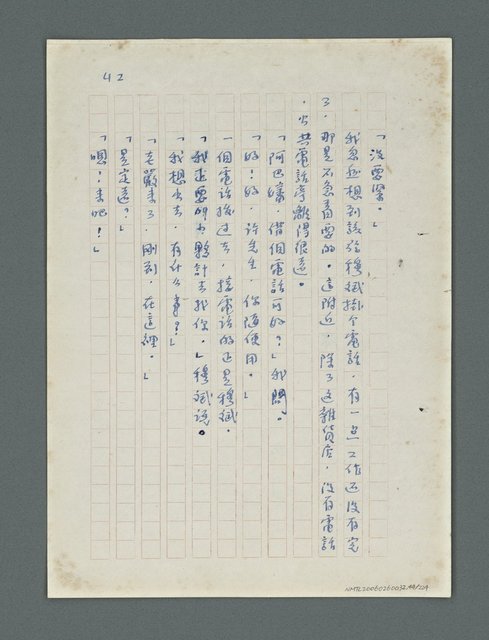 42
「沒要緊。」
我忽然想到該給穆斌掛个電話，有一点工作还沒有完
了，那是不急着要的。這附近，除了这雜貨店，沒有電話
，公共電話亭離得很遠。
「阿巴嬸，借個電話可好？」我問。
「好！好，許先生，你隨便用。」
一個電話撥过去，接電話的正是穆斌。
「我正要叫夥計去找你。」穆斌说。
「我想出去，有什么事？」
「老嚴來了，剛到，在這裡。」
「是定遠？」
「嗯！來吧！」
NMTL20060260032